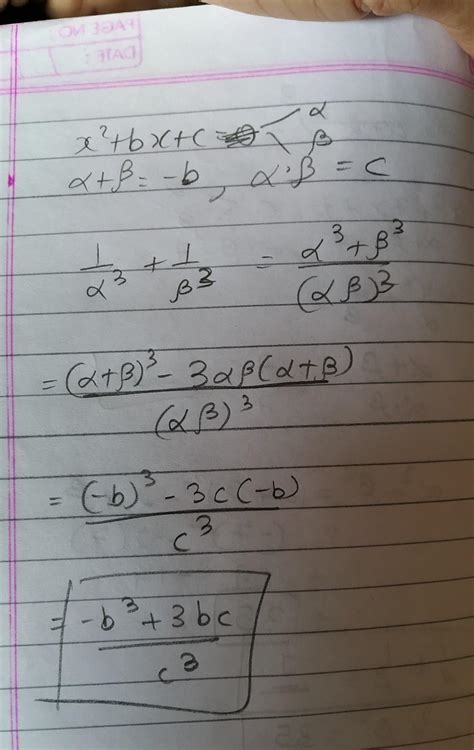 PAGE NO
DATE:
x²+bx+c = α
β
α+β = -b , α·β = c
1/α³ + 1/β³ = (α³+β³)/(αβ)³
= ((α+β)³ - 3αβ(α+β))/(αβ)³
= ((-b)³ - 3c(-b))/c³
= (-b³ + 3bc)/c³